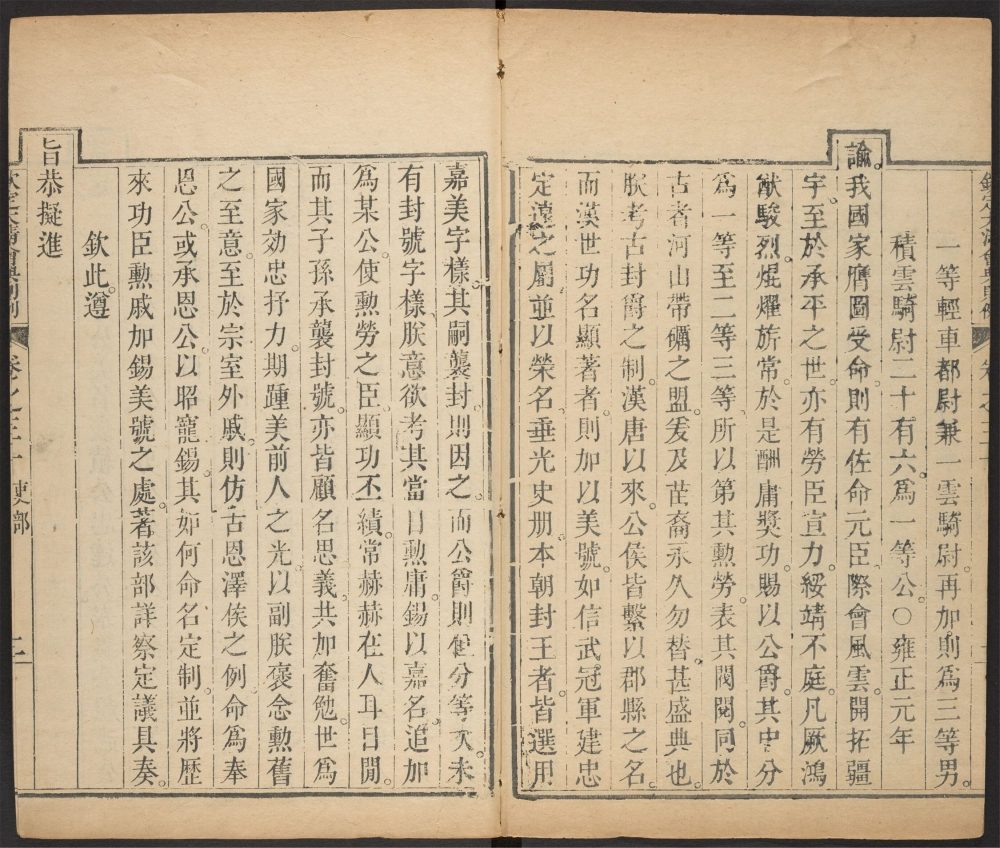 欽定大清會典則例
一等輕車都尉兼一雲騎尉。再加則爲三等男。
積雲騎尉二十有六。爲一等公。○雍正元年
諭。我國家膺圖受命。則有佐命元臣。際會風雲。開拓疆
宇。至於承平之世。亦有勞臣宣力。綏靖不庭。凡厥鴻
猷駿烈。焜燿旂常。於是酬庸獎功。賜以公爵。其中分
爲一等至二等三等。所以第其勲勞。表其閥閱。同於
古者河山帶礪之盟。爰及苗裔。永久勿替。甚盛典也。
朕考古封爵之制。漢唐以來。公侯皆繫以郡縣之名。
而漢世功名顯著者。則加以美號。如信武冠軍建忠
定遠之屬。並以榮名垂光史册。本朝封王者。皆選用
嘉美字樣。其嗣襲封則因之。而公爵則僅分等次。未
有封號字樣。朕意欲考其當日勲庸。錫以嘉名。追加
爲某公。使勲勞之臣。顯功丕績。常赫赫在人耳目閒。
而其子孫承襲封號。亦皆顧名思義。共加奮勉。世爲
國家効忠抒力。期踵美前人之光。以副朕褒念勲舊
之至意。至於宗室外戚。則仿古恩澤侯之例。命爲奉
恩公。或承恩公。以昭寵錫。其如何命名定制。並將歷
來功臣勲戚加錫美號之處。著該部詳察定議具奏。
欽此。遵
旨恭擬進
欽定大清會典則例 卷之三十 吏部